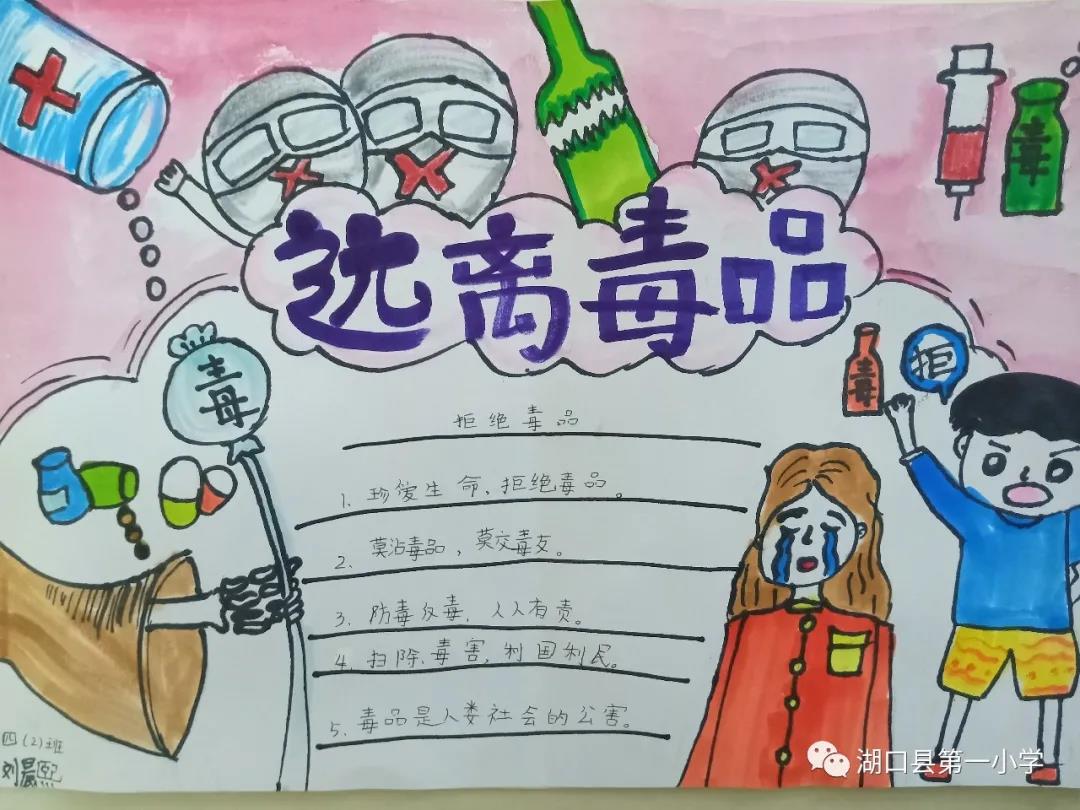 远离毒品
毒
毒
毒
拒
拒绝毒品
1、珍爱生命、拒绝毒品。
2、莫沾毒品，莫交毒友。
3、防毒反毒，人人有责。
4、扫除毒害，利国利民。
5、毒品是人类社会的公害。
四(2)班
刘晨熙
湖口县第一小学